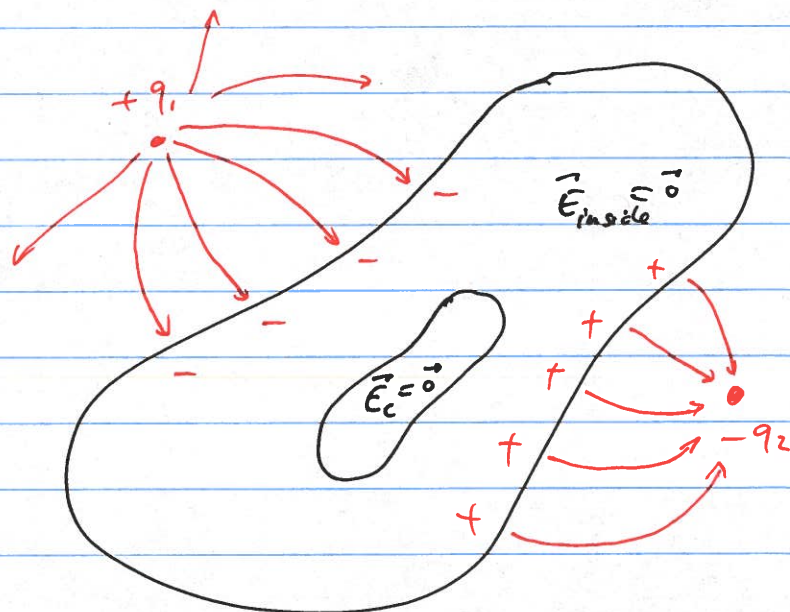 + q₁
E⃗inside = 0⃗
−
−
−
−
E⃗c = 0⃗
+
+
+
+
+
− q₂